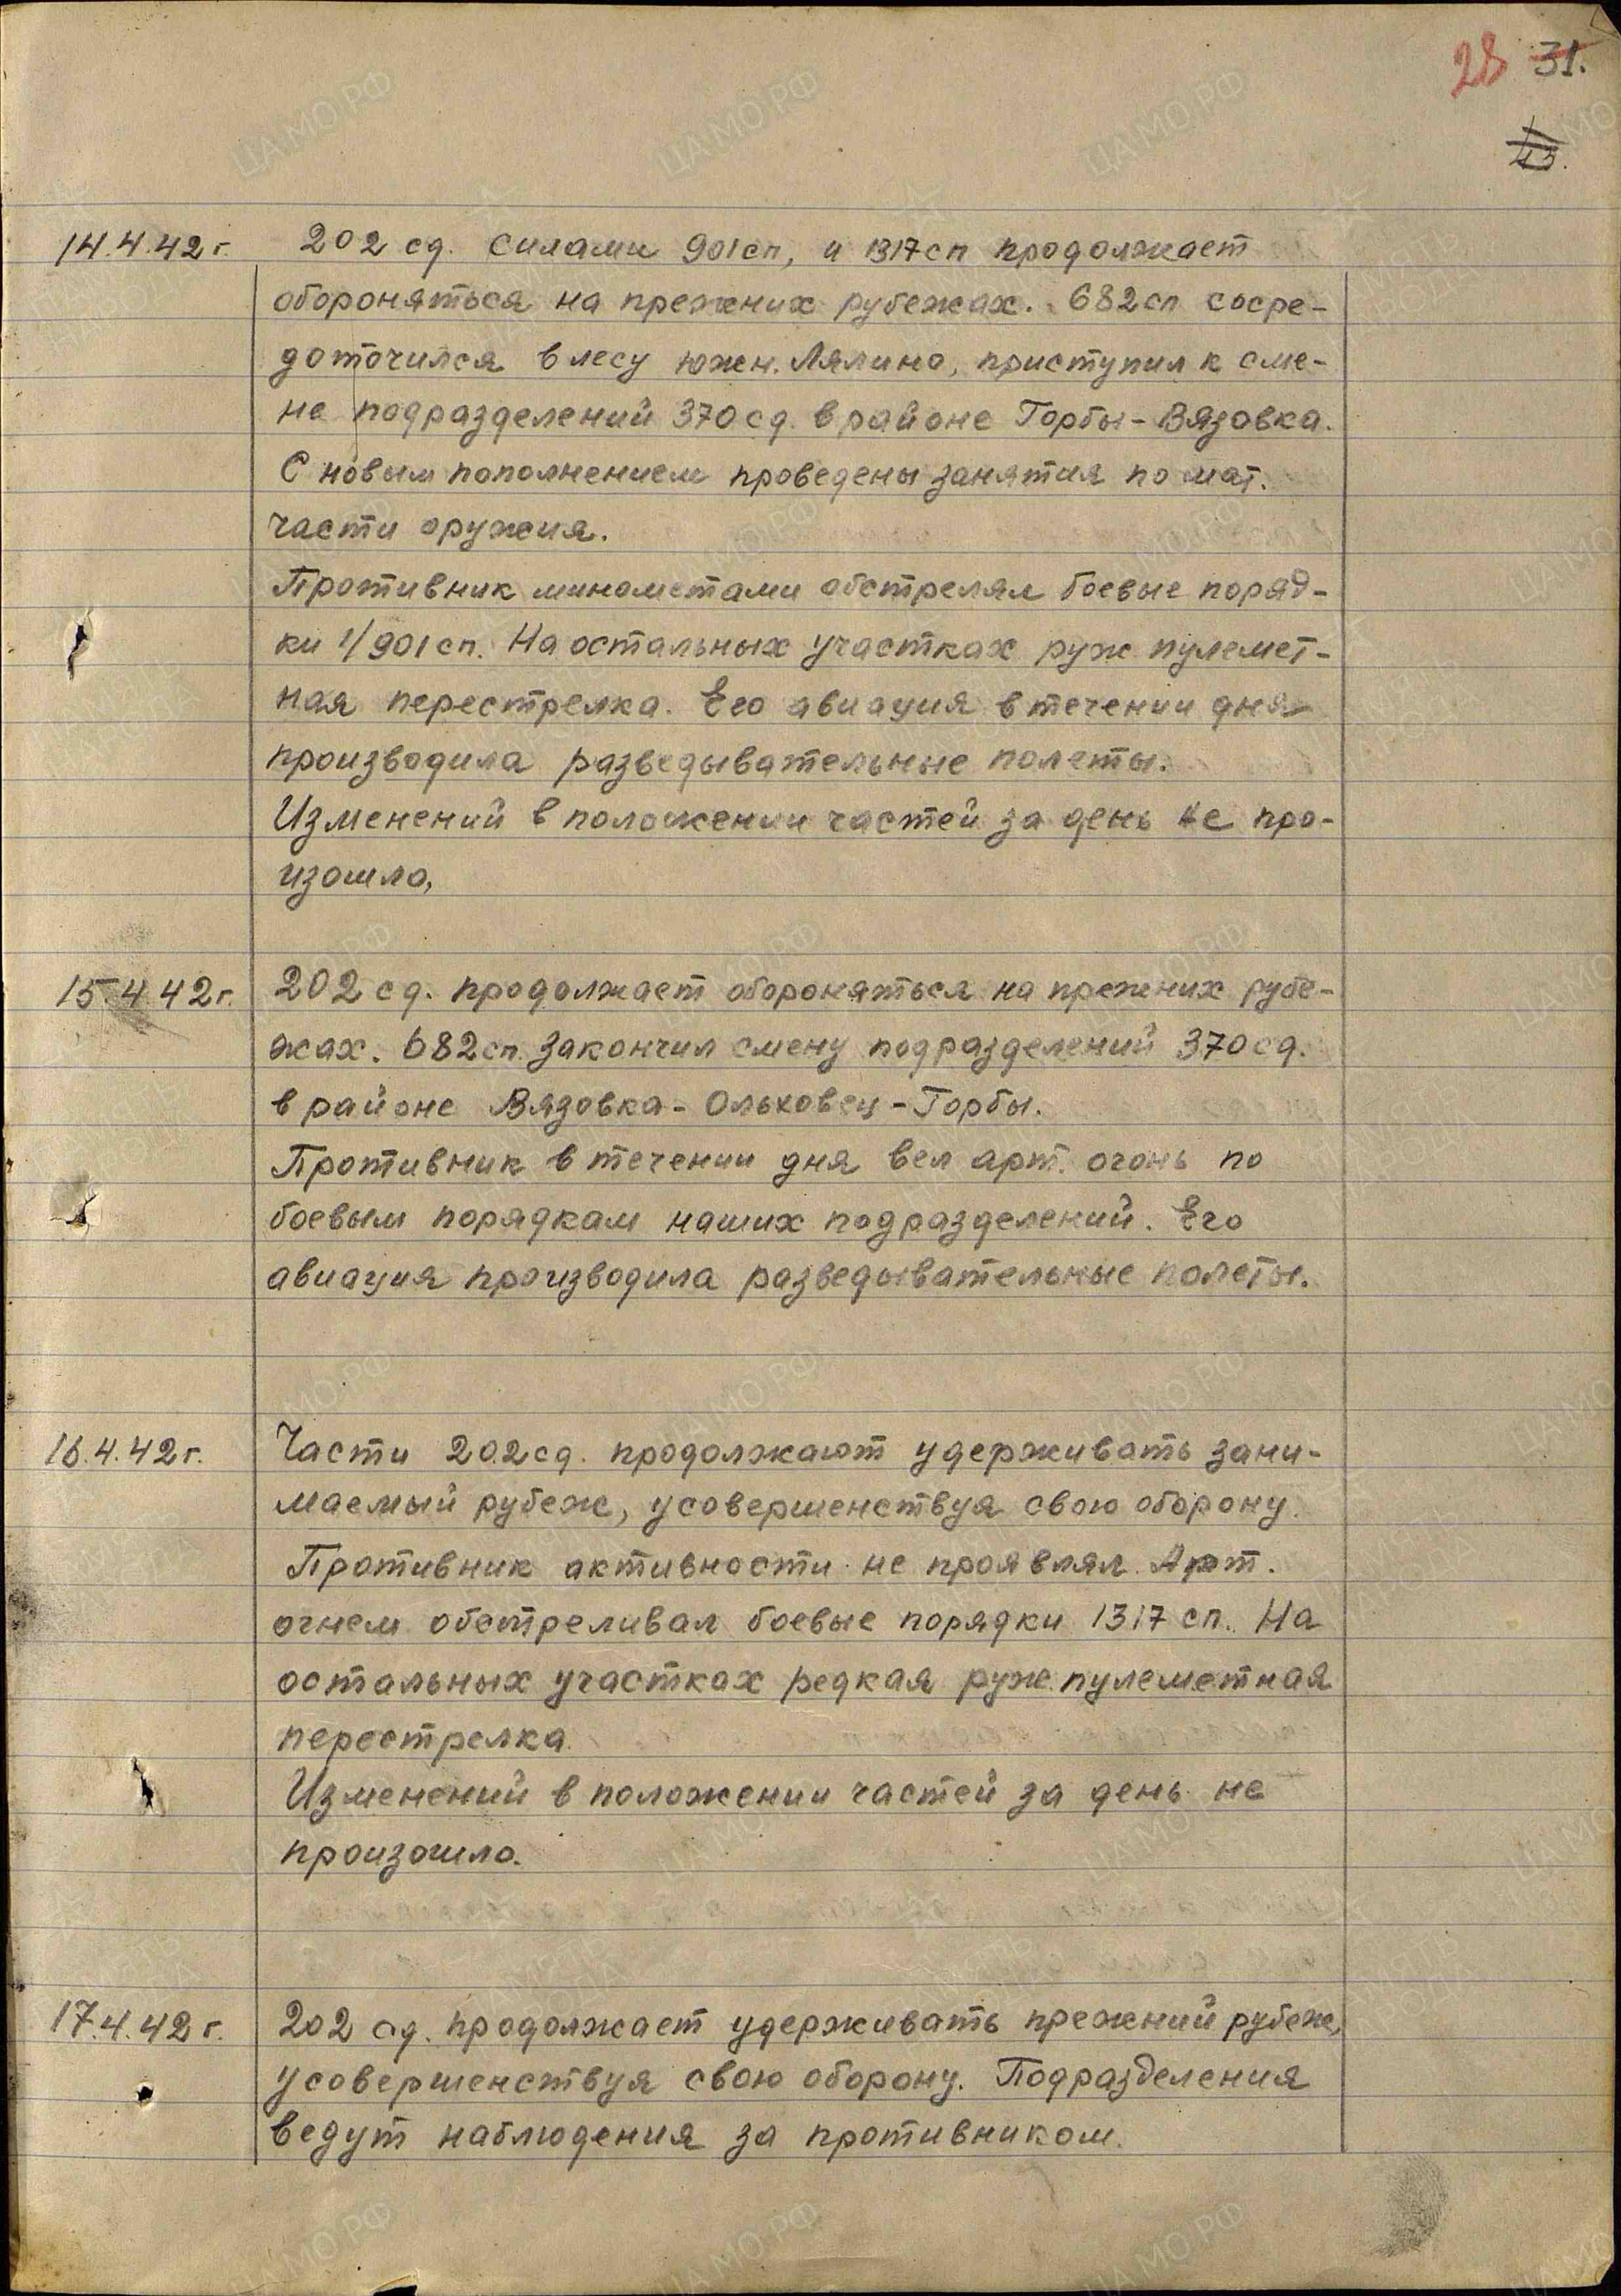 28 31.
43.
14.4.42г. 202 сд. силами 901сп, и 1317сп продолжает
обороняться на прежних рубежах. 682сп сосре-
доточился в лесу южн. Лялино, приступил к сме-
не подразделений 370сд. в районе Горбы-Вязовка.
С новым пополнением проведены занятия по мат.
части оружия.
Противник минометами обстрелял боевые поряд-
ки 1/901сп. На остальных участках руж пулемет-
ная перестрелка. Его авиация в течении дня
производила разведывательные полеты.
Изменений в положении частей за день не про-
изошло,
15.4.42г. 202сд. продолжает обороняться на прежних рубе-
жах. 682сп. закончил смену подразделений 370сд.
в районе Вязовка-Ольховец-Горбы.
Противник в течении дня вел арт. огонь по
боевым порядкам наших подразделений. Его
авиация производила разведывательные полеты.
16.4.42г. Части 202сд. продолжают удерживать зани-
маемый рубеж, усовершенствуя свою оборону.
Противник активности не проявлял. Арт.
огнем обстреливал боевые порядки 1317 сп. На
остальных участках редкая руж. пулеметная
перестрелка.
Изменений в положении частей за день не
произошло.
17.4.42г. 202 сд. продолжает удерживать прежний рубеж,
усовершенствуя свою оборону. Подразделения
ведут наблюдения за противником.